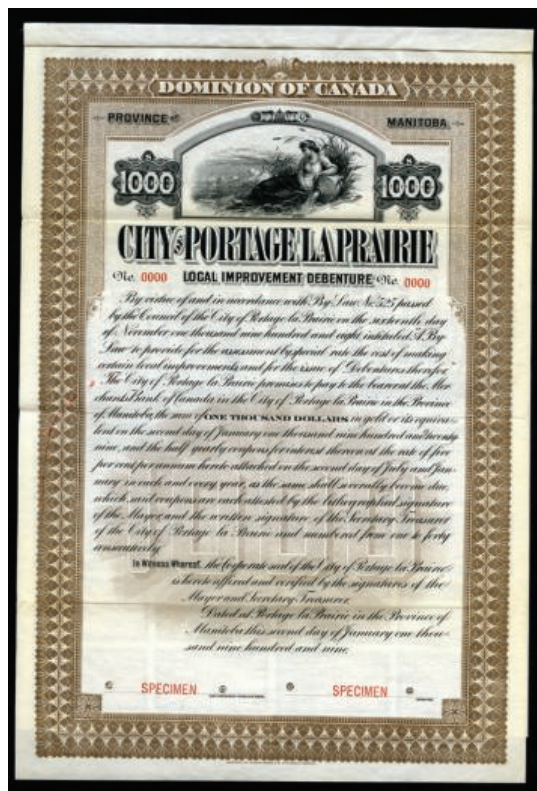 DOMINION OF CANADA
PROVINCE OF MANITOBA
$ $
1000 1000
CITY OF PORTAGE LA PRAIRIE
No. 0000 LOCAL IMPROVEMENT DEBENTURE No. 0000
By virtue of and in accordance with By-Law No. 525 passed
by the Council of the City of Portage la Prairie on the sixteenth day
of November one thousand nine hundred and eight intituled A By-
Law to provide for the assessment by special rate the cost of making
certain local improvements and for the issue of Debentures therefor
The City of Portage la Prairie promises to pay to the bearer at the Mer-
chants Bank of Canada in the City of Portage la Prairie in the Province
of Manitoba, the sum of ONE THOUSAND DOLLARS in gold or its equiva-
lent on the second day of January one thousand nine hundred and twenty
nine, and the half yearly coupons for interest thereon at the rate of five
per cent per annum hereto attached on the second day of July and Jan-
uary in each and every year, as the same shall severally become due,
which said coupons are each attested by the lithographed signature
of the Mayor and the written signature of the Secretary Treasurer
of the City of Portage la Prairie and numbered from one to forty
consecutively.
In Witness Whereof, the Corporate seal of the City of Portage la Prairie
is hereto affixed and verified by the signatures of the
Mayor and Secretary Treasurer.
Dated at Portage la Prairie in the Province of
Manitoba this second day of January one thou-
sand nine hundred and nine.
SPECIMEN SPECIMEN